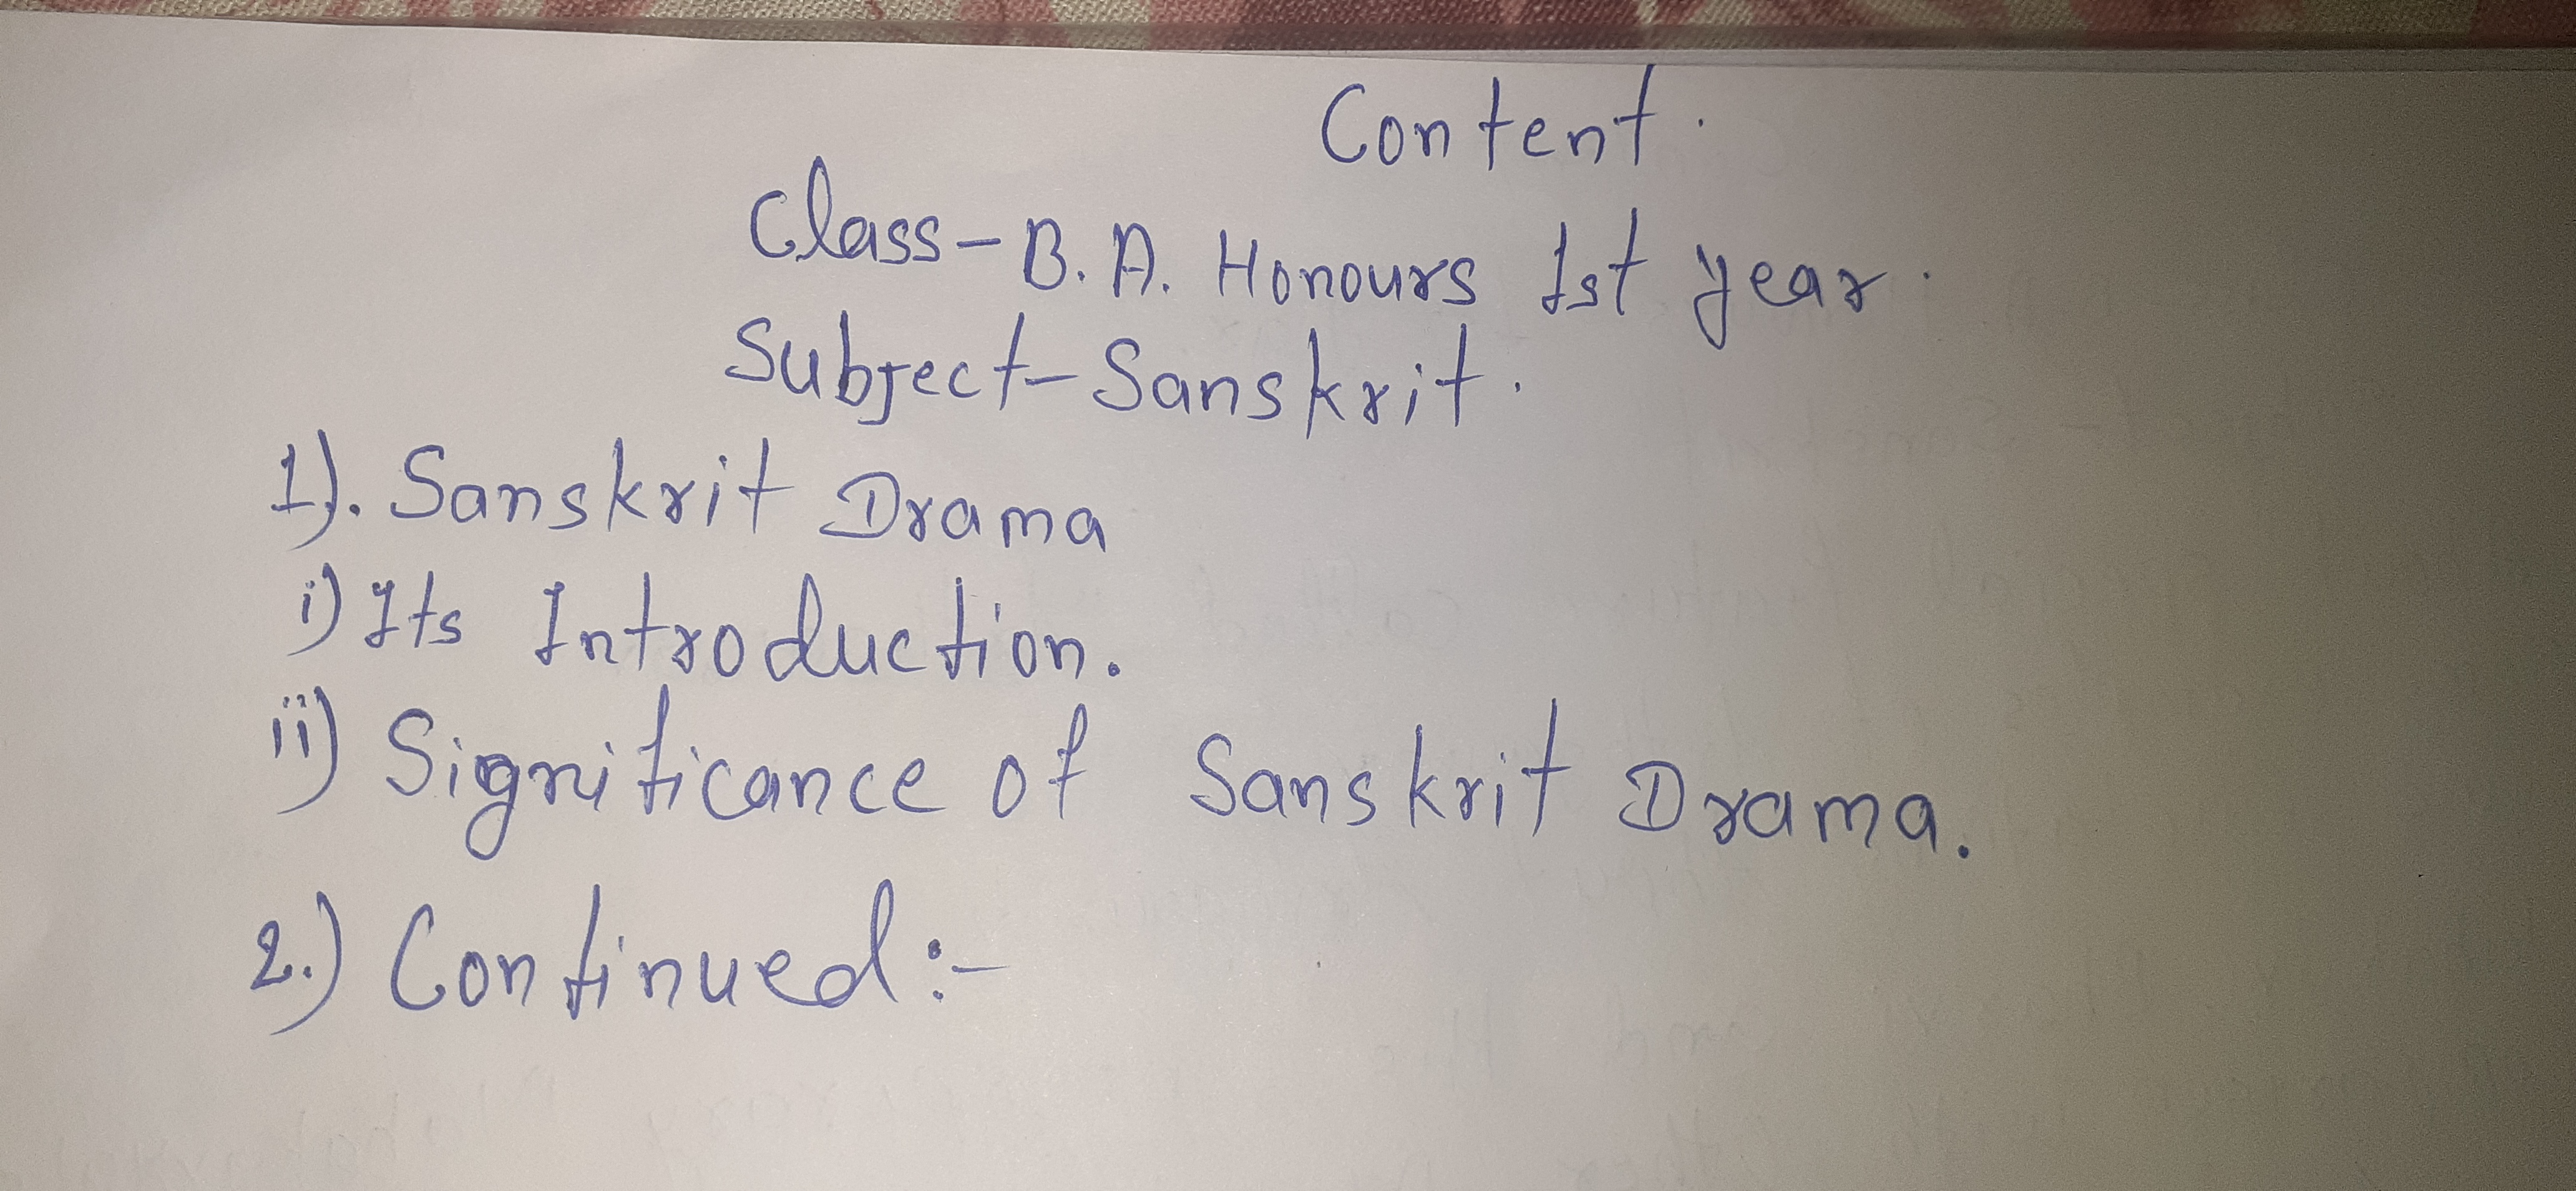 Content.
Class-B.A. Honours 1st year.
Subject-Sanskrit.
1). Sanskrit Drama
i) Its Introduction.
ii) Significance of Sanskrit Drama.
2.) Continued:-